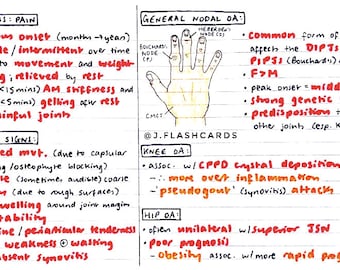 S: PAIN
onset (months → years)
/intermittent over time
to movement and weight-
; relieved by rest
(<15mins) AM stiffness and
<5 mins) gelling after rest
joints
SIGNS:
mvt. (due to capsular
/osteophyte blocking)
(sometimes audible) coarse
(due to rough surfaces)
around joint margin
/periarticular tenderness
weakness + wasting
synovitis
GENERAL NODAL OA:
HEBERDEN'S
NODE (D)
BOUCHARD'S
NODE (P)
CMCJ
@J.FLASHCARDS
• common form of
affects the DIPJs
PIPJs (Bouchard's)
• F>M
• peak onset = middle
• strong genetic
predisposition →
other joints (esp. K
KNEE OA:
• assoc. w/ CPPD crystal deposition
- ∴ more overt inflammation
- 'pseudogout' (synovitis) attack
HIP OA:
• often unilateral w/ superior JSN
• poor prognosis
- obesity assoc. w/ more rapid prog